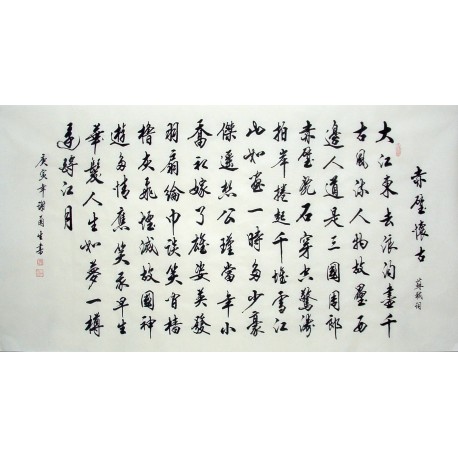 赤壁懷古
蘇軾詞
大江東去浪淘盡千
古風流人物故壘西
邊人道是三國周郎
赤壁亂石穿空驚濤
拍岸捲起千堆雪江
山如畫一時多少豪
傑遙想公瑾當年小
喬初嫁了雄姿英發
羽扇綸巾談笑間檣
櫓灰飛煙滅故國神
遊多情應笑我早生
華髮人生如夢一樽
還酹江月
庚寅年書